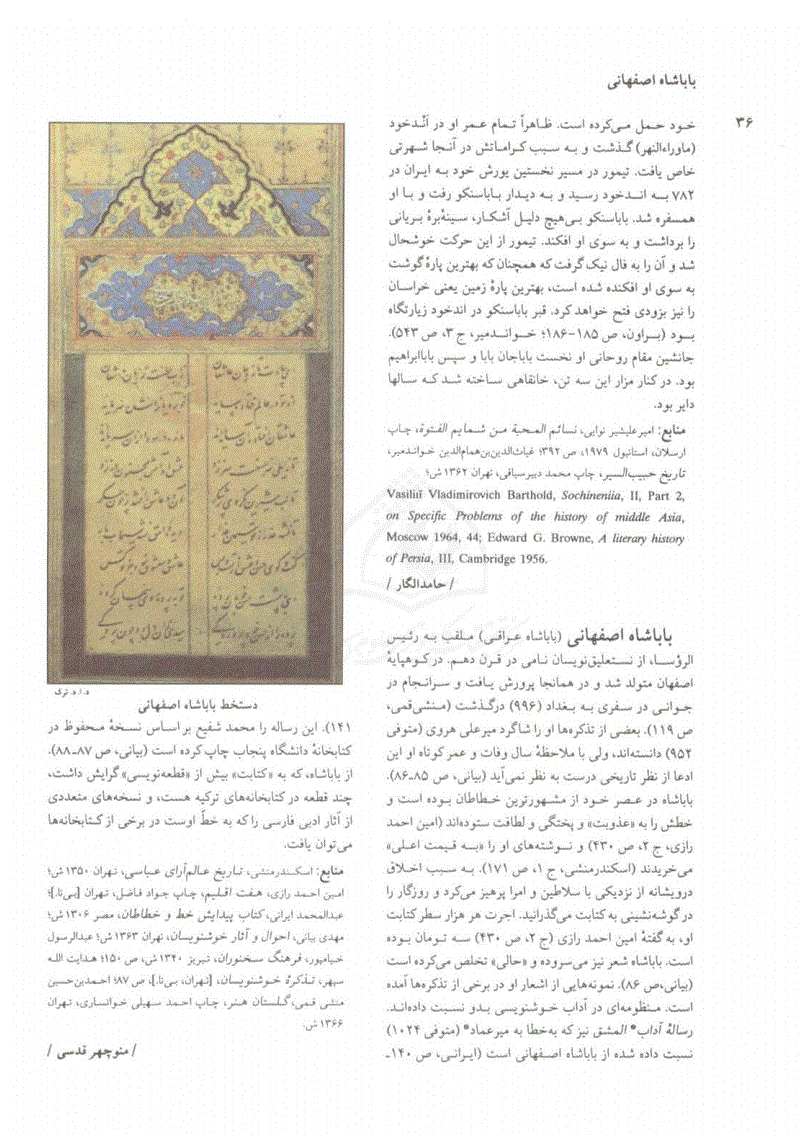 باباشاه اصفهانی
۳۶
خود حمل می‌کرده است. ظاهراً تمام عمر او در اَنْدخود
(ماوراءالنهر) گذشت و به سبب کراماتش در آنجا شهرتی
خاص یافت. تیمور در مسیر نخستین یورش خود به ایران در
۷۸۲ به اندخود رسید و به دیدار باباسنکو رفت و با او
همسفره شد. باباسنکو بی‌هیچ دلیل آشکار، سینهٔ برهٔ بریانی
را برداشت و به سوی او افکند. تیمور از این حرکت خوشحال
شد و آن را به فال نیک گرفت که همچنان که بهترین پارهٔ گوشت
به سوی او افکنده شده است، بهترین پارهٔ زمین یعنی خراسان
را نیز بزودی فتح خواهد کرد. قبر باباسنکو در اندخود زیارتگاه
بود (براون، ص ۱۸۵-۱۸۶؛ خواندمیر، ج ۳، ص ۵۴۳).
جانشین مقام روحانی او نخست باباجان بابا و سپس باباابراهیم
بود. در کنار مزار این سه تن، خانقاهی ساخته شد که سالها
دایر بود.
منابع: امیرعلیشیر نوایی، نسائم المحبة من شمایم الفتوة، چاپ
ارسلان، استانبول ۱۹۷۹، ص ۳۹۲؛ غیاث‌الدین‌بن‌همام‌الدین خواندمیر،
تاریخ حبیب‌السیر، چاپ محمد دبیرسیاقی، تهران ۱۳۶۲ ش؛
Vasiliĭ Vladimirovich Barthold, Sochineniia, II, Part 2,
on Specific Problems of the history of middle Asia,
Moscow 1964, 44; Edward G. Browne, A literary history
of Persia, III, Cambridge 1956.
/ حامدالگار /
باباشاه اصفهانی (باباشاه عراقی) ملقب به رئیس
الرؤسا، از نستعلیق‌نویسان نامی در قرن دهم. در کوهپایهٔ
اصفهان متولد شد و در همانجا پرورش یافت و سرانجام در
جوانی در سفری به بغداد (۹۹۶) درگذشت (منشی‌قمی،
ص ۱۱۹). بعضی از تذکره‌ها او را شاگرد میرعلی هروی (متوفی
۹۵۲) دانسته‌اند، ولی با ملاحظهٔ سال وفات و عمر کوتاه او این
ادعا از نظر تاریخی درست به نظر نمی‌آید (بیانی، ص ۸۵ـ۸۶).
باباشاه در عصر خود از مشهورترین خطاطان بوده است و
خطش را به «عذوبت» و پختگی و لطافت ستوده‌اند (امین احمد
رازی، ج ۲، ص ۴۳۰) و نوشته‌های او را «به قیمت اعلی»
می‌خریدند (اسکندرمنشی، ج ۱، ص ۱۷۱). به سبب اخلاق
درویشانه از نزدیکی با سلاطین و امرا پرهیز می‌کرد و روزگار را
در گوشه‌نشینی به کتابت می‌گذرانید. اجرت هر هزار سطر کتابت
او، به گفتهٔ امین احمد رازی (ج ۲، ص ۴۳۰) سه تومان بوده
است. باباشاه شعر نیز می‌سروده و «حالی» تخلص می‌کرده است
(بیانی، ص ۸۶). نمونه‌هایی از اشعار او در برخی از تذکره‌ها آمده
است. منظومه‌ای در آداب خوشنویسی بدو نسبت داده‌اند.
رسالهٔ آداب* المشق نیز که به‌خطا به میرعماد* (متوفی ۱۰۲۴)
نسبت داده شده از باباشاه اصفهانی است (ایرانی، ص ۱۴۰ـ
د.ا.د.ترک
دستخط باباشاه اصفهانی
۱۴۱). این رساله را محمد شفیع براساس نسخهٔ محفوظ در
کتابخانهٔ دانشگاه پنجاب چاپ کرده است (بیانی، ص ۸۷ـ۸۸).
از باباشاه، که به «کتابت» بیش از «قطعه‌نویسی» گرایش داشت،
چند قطعه در کتابخانه‌های ترکیه هست، و نسخه‌های متعددی
از آثار ادبی فارسی را که به خطّ اوست در برخی از کتابخانه‌ها
می‌توان یافت.
منابع: اسکندرمنشی، تاریخ عالم‌آرای عباسی، تهران ۱۳۵۰ ش؛
امین احمد رازی، هفت اقلیم، چاپ جواد فاضل، تهران [بی‌تا.]؛
عبدالمحمد ایرانی، کتاب پیدایش خط و خطاطان، مصر ۱۳۰۶ ش؛
مهدی بیانی، احوال و آثار خوشنویسان، تهران ۱۳۶۳ ش؛ عبدالرسول
خیامپور، فرهنگ سخنوران، تبریز ۱۳۴۰ ش، ص ۱۵۰؛ هدایت الله
سپهر، تذکرهٔ خوشنویسان، [تهران، بی‌تا.]، ص ۸۷؛ احمدبن‌حسین
منشی قمی، گلستان هنر، چاپ احمد سهیلی خوانساری، تهران
۱۳۶۶ ش.
/ منوچهر قدسی /